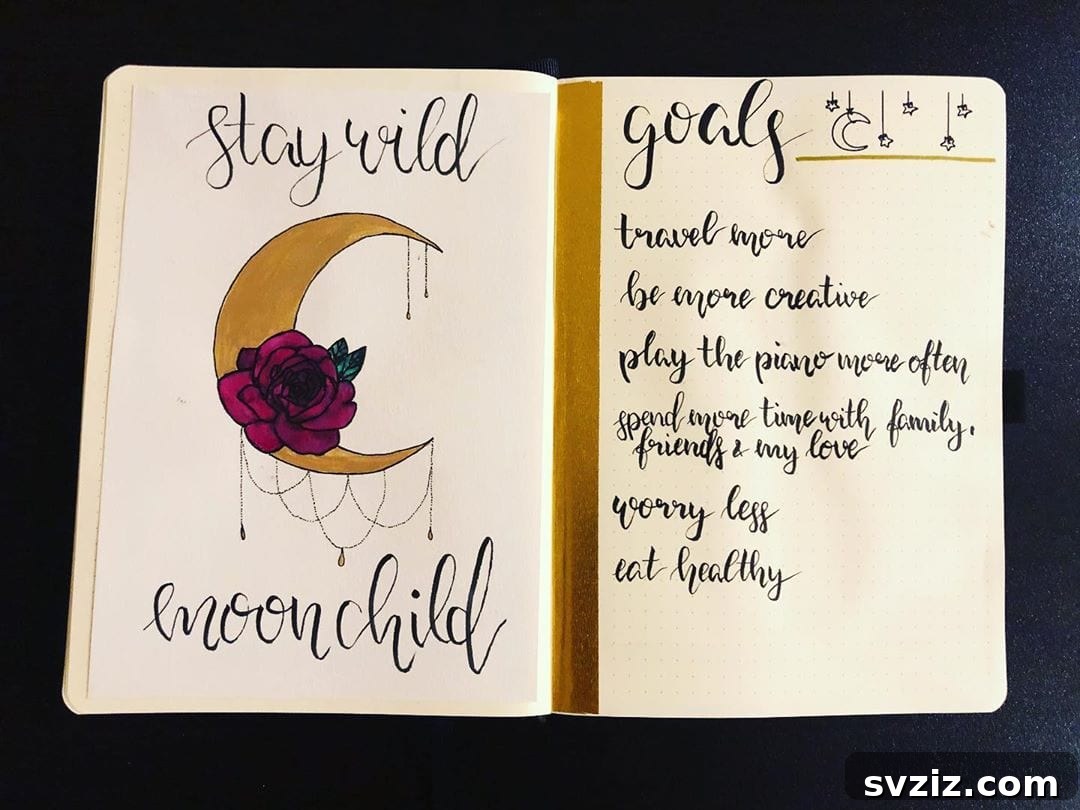 stay wild
moon child
goals
travel more
be more creative
play the piano more often
spend more time with family,
friends & my love
worry less
eat healthy
svziz.com